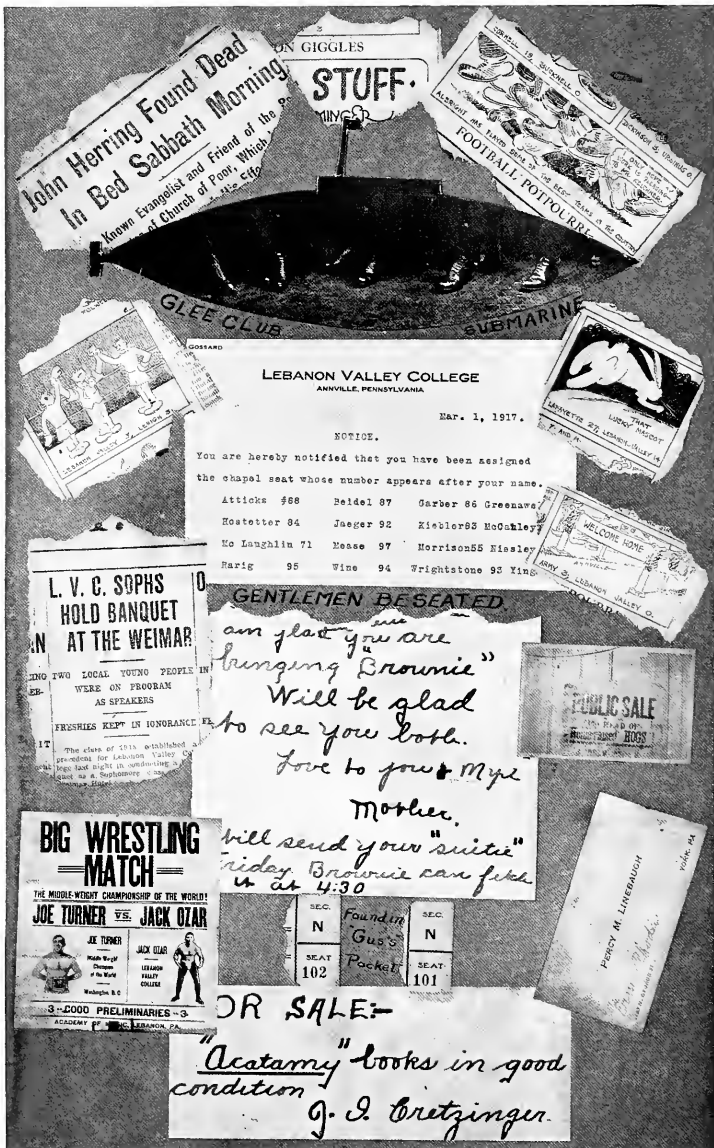 John Herring Found Dead
In Bed Sabbath Morning
Known Evangelist and Friend of the
of Church of Poor, Which
ON GIGGLES
STUFF.
MINGER
CORNELL 19 BUCKNELL 0
DICKINSON 3, URSINUS 0.
ALBRIGHT HAS PLAYED SOME OF THE BEST TEAMS IN THE COUNTRY
FOOTBALL POTPOURRI
GLEE CLUB SUBMARINE
LEBANON VALLEY 3, LEHIGH 3
GOSSARD
LEBANON VALLEY COLLEGE
ANNVILLE, PENNSYLVANIA
Mar. 1, 1917.
NOTICE.
You are hereby notified that you have been assigned
the chapel seat whose number appears after your name.
Atticks #88 Beidel 87 Garber 86 Greenawa
Hostetter 84 Jaeger 92 Kiebler83 McCauley
Mc Laughlin 71 Mease 97 Morrison55 Nissley
Rarig 95 Wine 94 Wrightstone 93 Ying
THAT
LUCKY MASCOT
LAFAYETTE 27, LEBANON-VALLEY 14
F. AND M.
WELCOME HOME
ANNVILLE
ARMY 3, LEBANON VALLEY 0.
GENTLEMEN BE SEATED.
L. V. C. SOPHS
HOLD BANQUET
AT THE WEIMAR
TWO LOCAL YOUNG PEOPLE
WERE ON PROGRAM
AS SPEAKERS
FRESHIES KEPT IN IGNORANCE
The class of 1919 established a
precedent for Lebanon Valley Co
lege last night in conducting a
quet as a Sophomore class
am glad you are
bringing "Brownie"
Will be glad
to see you both.
Love to you & Myrl
Mother.
Will send your "suitie"
Friday. Brownie can fetch
it at 4:30
PUBLIC SALE
HEAD OF
Homeraised HOGS
PERCY M. LINEBAUGH
YORK, PA
BIG WRESTLING
MATCH
THE MIDDLE-WEIGHT CHAMPIONSHIP OF THE WORLD!
JOE TURNER VS. JACK OZAR
JOE TURNER
Middle Weight
Champion
of the World
Washington, D. C
JACK OZAR
LEBANON
VALLEY
COLLEGE
3--GOOD PRELIMINARIES--3
ACADEMY OF MUSIC, LEBANON, PA.
SEC.
N
SEAT
102
Found in
"Gus's
Pocket
SEC.
N
SEAT
101
OR SALE:-
"Acatamy" books in good
condition
J. I. Cretzinger.